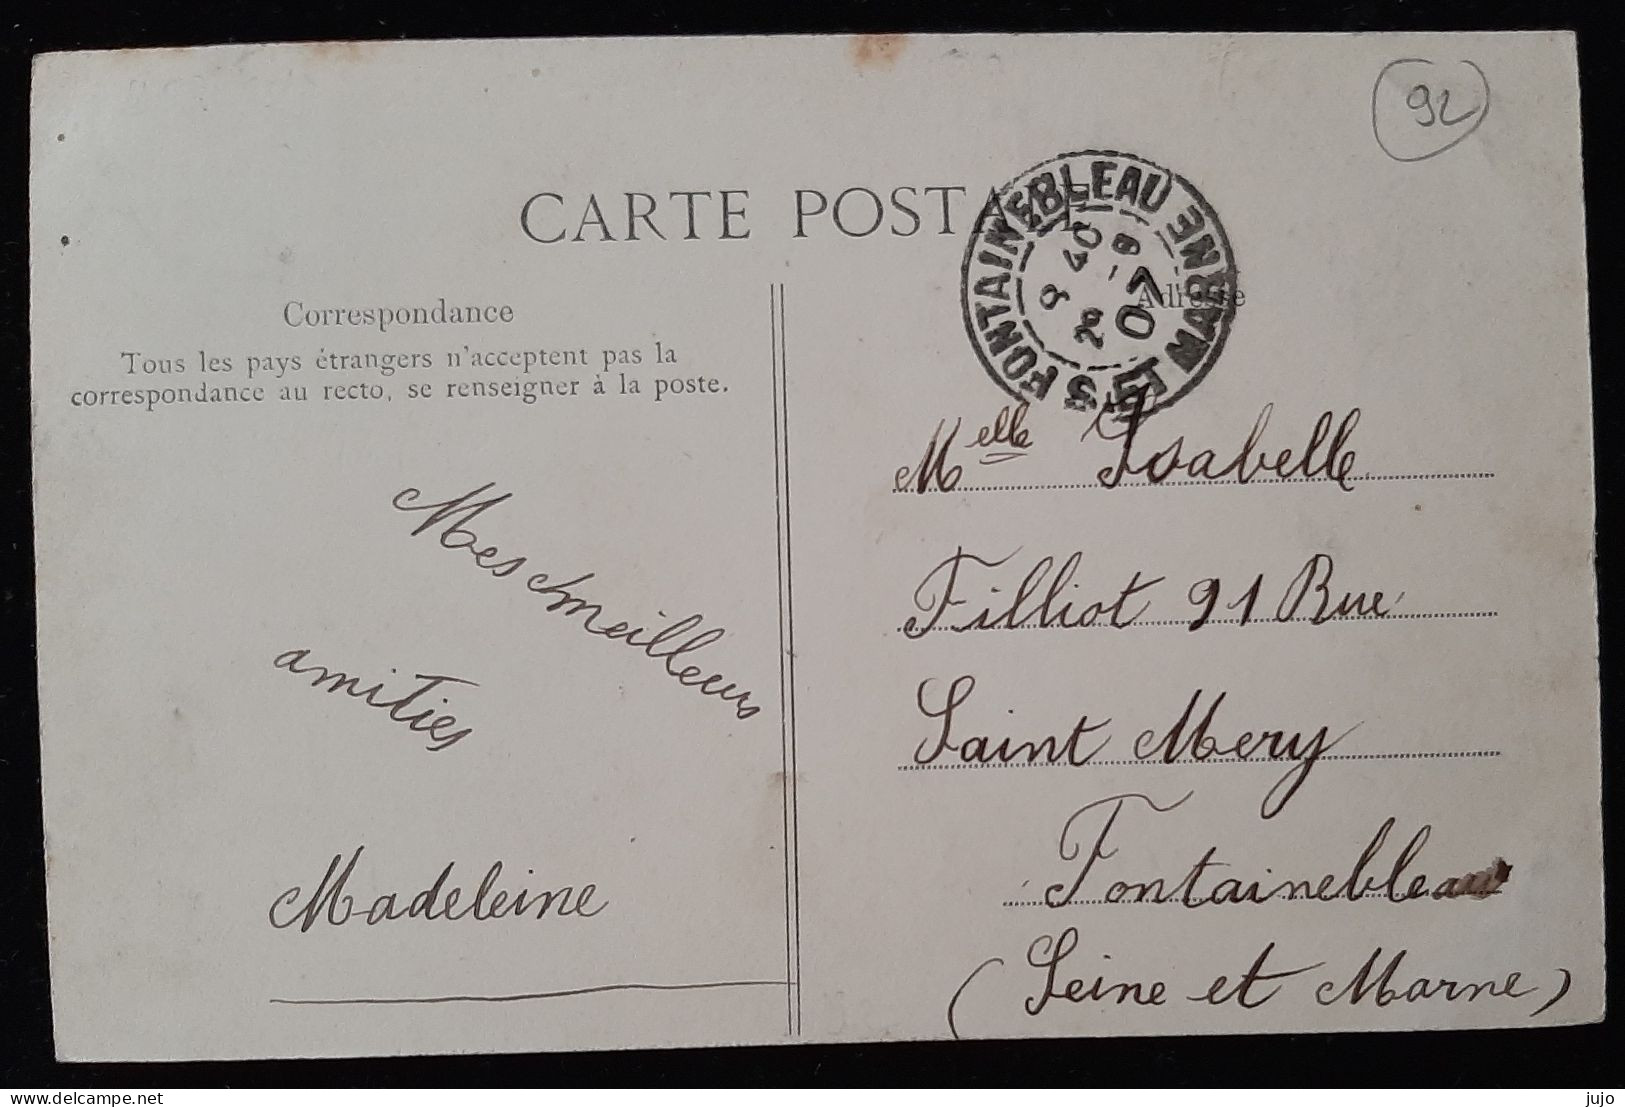 92
CARTE POSTALE
FONTAINEBLEAU
8 40
29 -8
07
S. ET MARNE
Correspondance
Adresse
Tous les pays étrangers n'acceptent pas la
correspondance au recto, se renseigner à la poste.
Mes meilleurs
amitiés
Madeleine
Melle Isabelle
Filliot 91 Rue
Saint Mery
Fontainebleau
(Seine et Marne)
delcampe.net
jujo